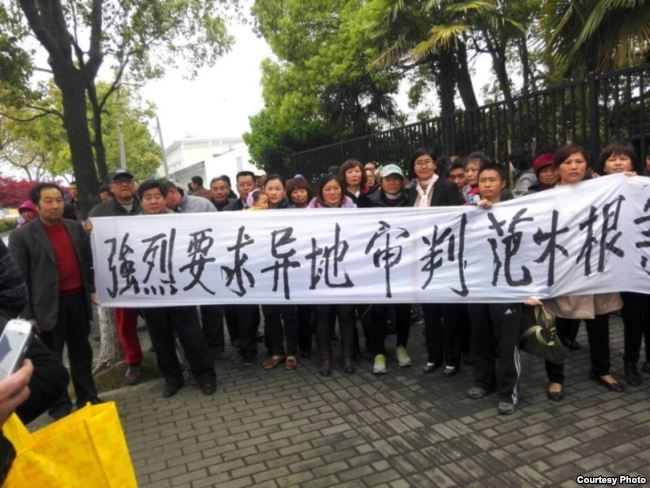 強烈要求异地审判范木根
Courtesy Photo